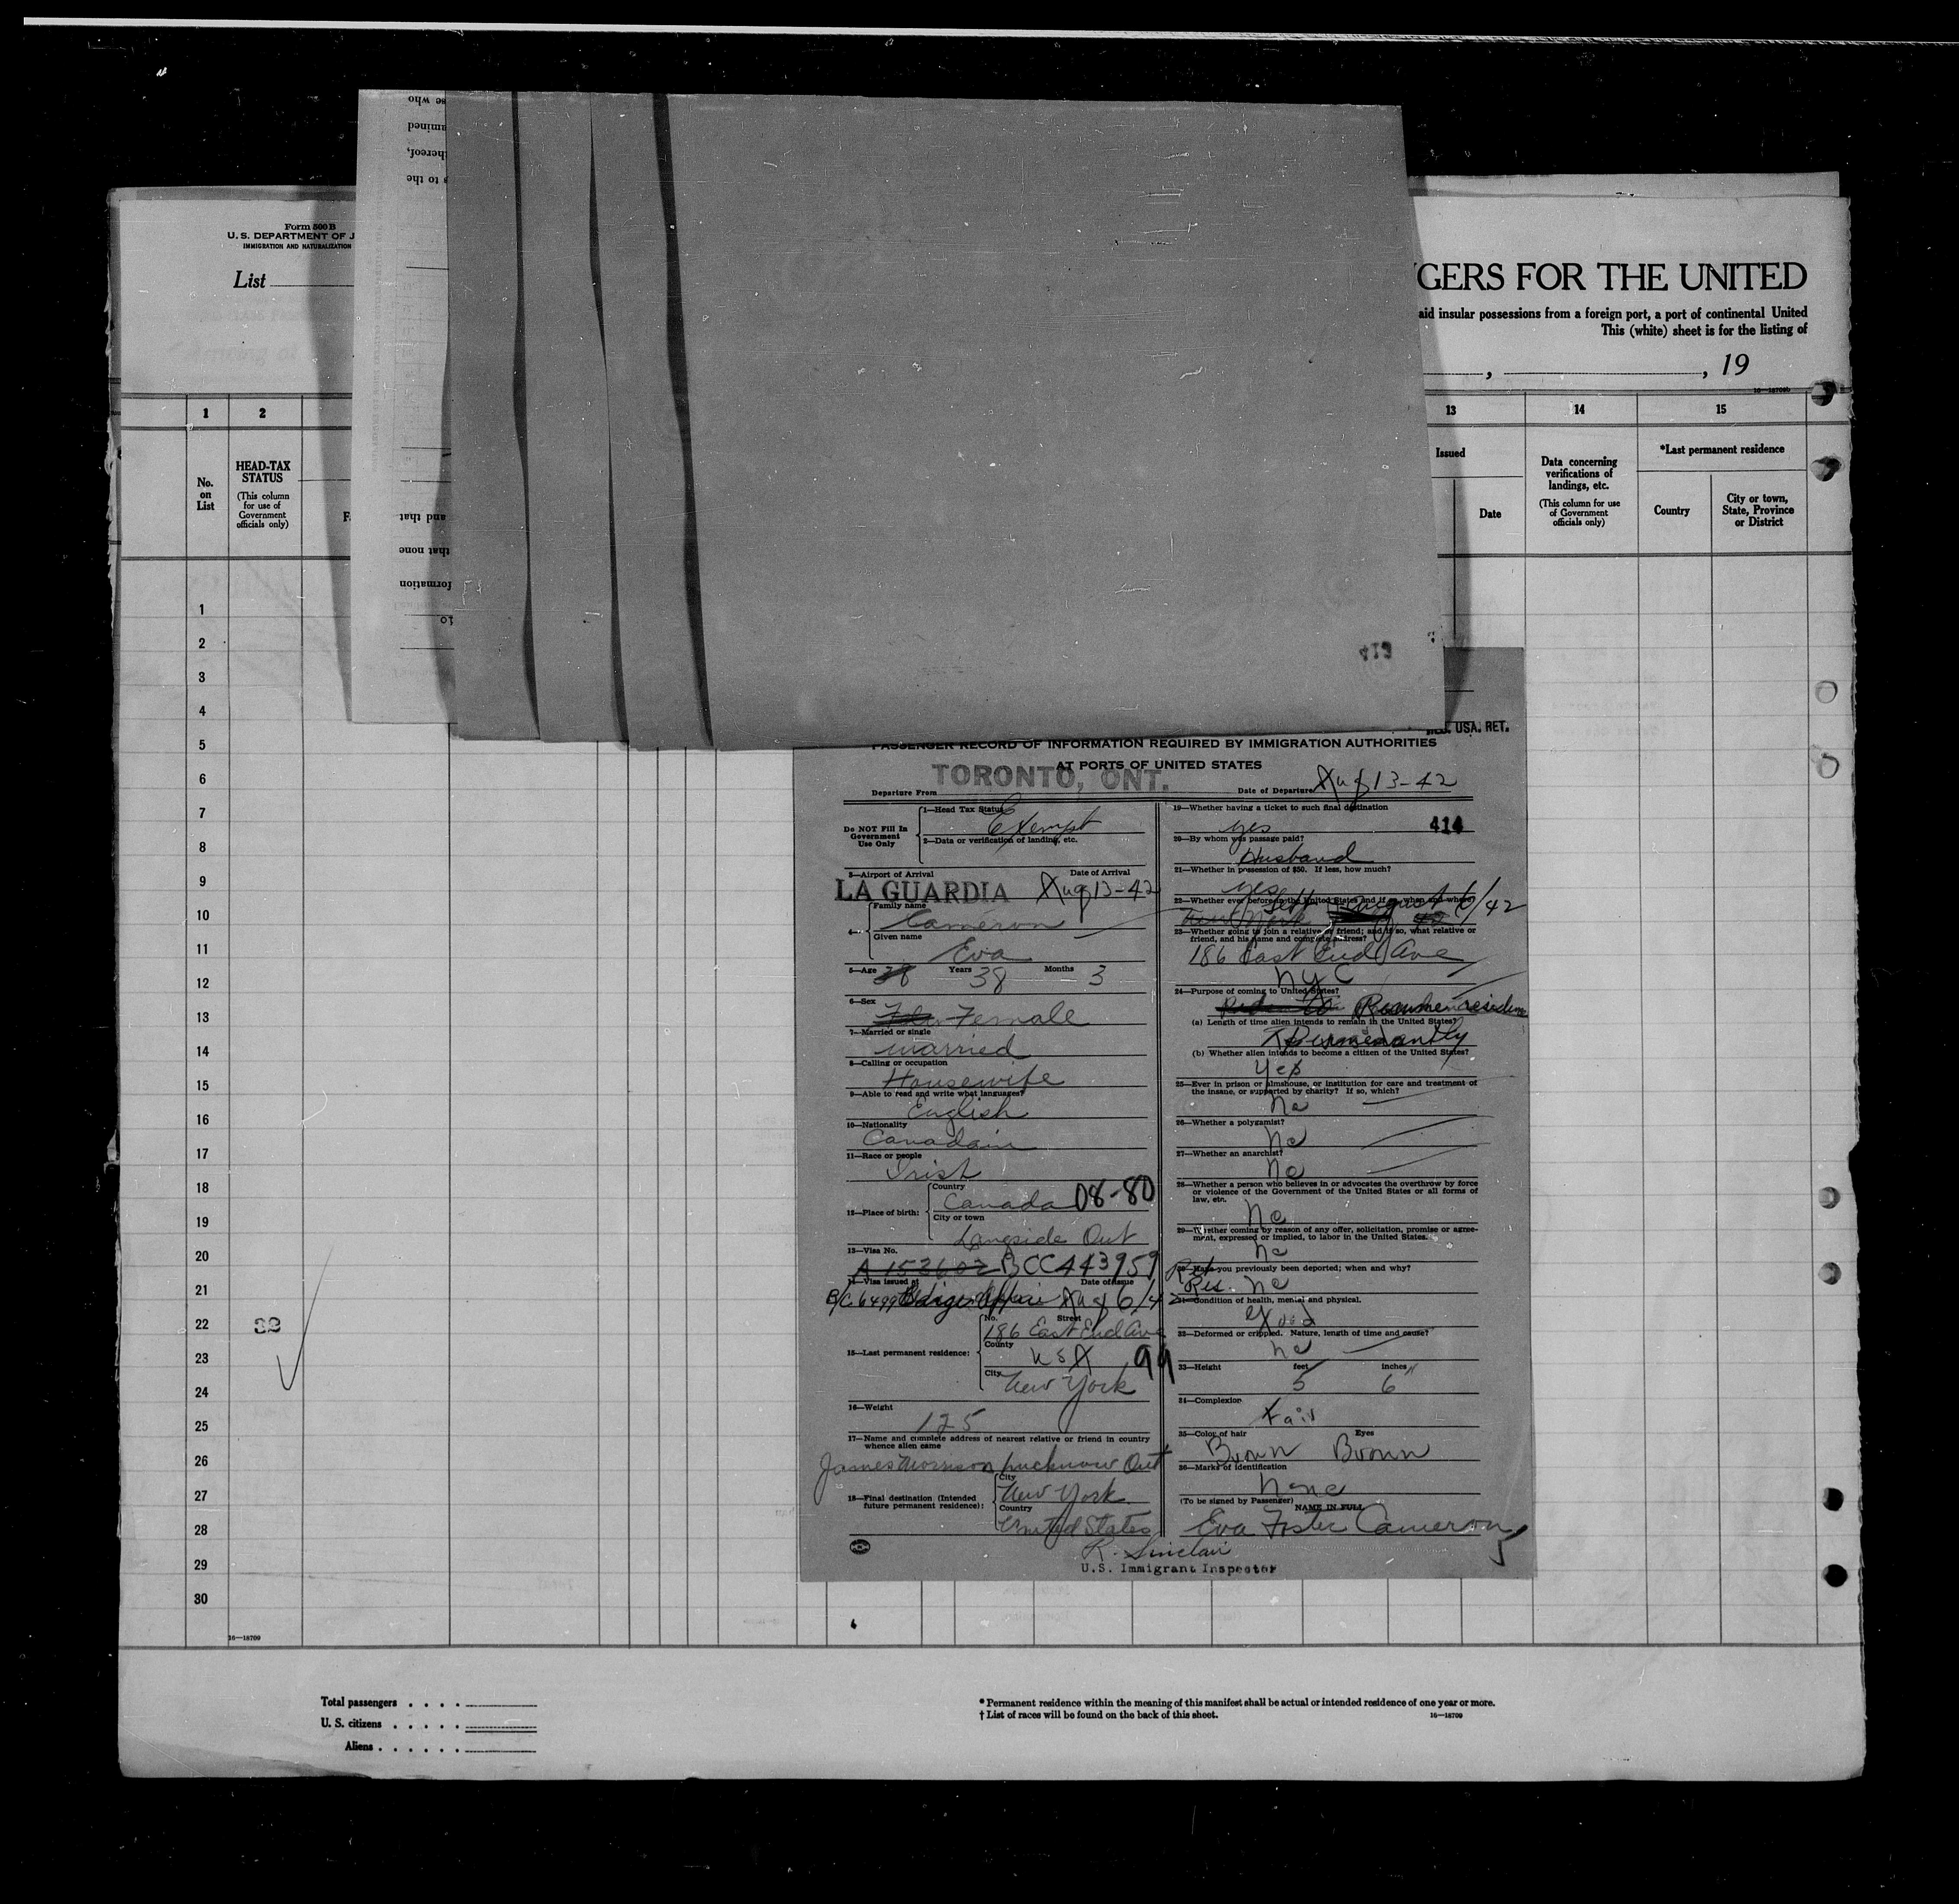 Form 500 B
U. S. DEPARTMENT OF J
IMMIGRATION AND NATURALIZATION
List
GERS FOR THE UNITED
aid insular possessions from a foreign port, a port of continental United
This (white) sheet is for the listing of
, , 19
se who
amined
hereof,
s to the
and that
that none
formation
to
1 2 13 14 15
No.
on
List
HEAD-TAX
STATUS
(This column
for use of
Government
officials only)
F
Issued
Date
Data concerning
verifications of
landings, etc.
(This column for use
of Government
officials only)
*Last permanent residence
Country
City or town,
State, Province
or District
1
2
3
4
5
6
7
8
9
10
11
12
13
14
15
16
17
18
19
20
21
22
23
24
25
26
27
28
29
30
32
413
USA. RET.
PASSENGER RECORD OF INFORMATION REQUIRED BY IMMIGRATION AUTHORITIES
AT PORTS OF UNITED STATES
Departure From TORONTO, ONT. Date of Departure Aug 13-42
Do NOT Fill In
Government
Use Only
1—Head Tax Status
Exempt
2—Data or verification of landing, etc.
3—Airport of Arrival Date of Arrival
LA GUARDIA Aug 13-42
4— Family name
Cameron
Given name
Eva
5—Age 38 Years 38 Months 3
6—Sex
Female
7—Married or single
married
8—Calling or occupation
Housewife
9—Able to read and write what languages?
English
10—Nationality
Canadain
11—Race or people
Irish
12—Place of birth: Country
Canada 08-80
City or town
Langside Ont
13—Visa No.
A 153602 BCC443959
14—Visa issued at Date of issue
Aug 6/42
15—Last permanent residence: No. Street
186 East End Ave
County
USA 99
City
New York
16—Weight
125
17—Name and complete address of nearest relative or friend in country
whence alien came
James Morrison Lucknow Ont
18—Final destination (Intended
future permanent residence):
City
New York
Country
United States
19—Whether having a ticket to such final destination
yes 414
20—By whom was passage paid?
Husband
21—Whether in possession of $50. If less, how much?
yes
22—Whether ever before in the United States and if so, when and where?
New York left August 6/42
23—Whether going to join a relative or friend; and if so, what relative or
friend, and his name and complete address?
186 East End Ave
NYC
24—Purpose of coming to United States?
Resume residence
(a) Length of time alien intends to remain in the United States?
Permenantly
(b) Whether alien intends to become a citizen of the United States?
Yes
25—Ever in prison or almshouse, or institution for care and treatment of
the insane, or supported by charity? If so, which?
No
26—Whether a polygamist?
No
27—Whether an anarchist?
No
28—Whether a person who believes in or advocates the overthrow by force
or violence of the Government of the United States or all forms of
law, etc.
No
29—Whether coming by reason of any offer, solicitation, promise or agree-
ment, expressed or implied, to labor in the United States.
No
30—Have you previously been deported; when and why?
Ret Res. No
31—Condition of health, mental and physical.
Good
32—Deformed or crippled. Nature, length of time and cause?
No
33—Height feet inches
5 6"
34—Complexion
Fair
35—Color of hair Eyes
Brown Brown
36—Marks of identification
None
(To be signed by Passenger)
NAME IN FULL
Eva Foster Cameron
R. Sinclair
U.S. Immigrant Inspector
16—18709
Total passengers . . . .
U. S. citizens . . . . .
Aliens . . . . . .
* Permanent residence within the meaning of this manifest shall be actual or intended residence of one year or more.
† List of races will be found on the back of this sheet.
16—18709